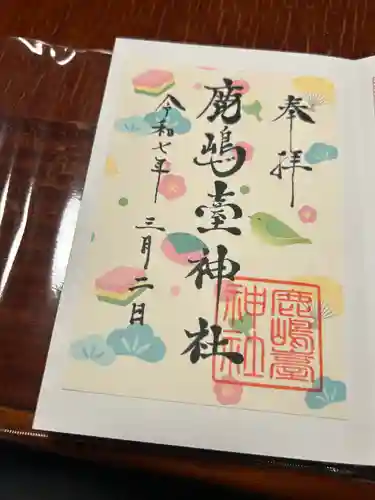 奉拝
鹿嶋臺神社
令和七年
三月二日
鹿嶋臺
神社